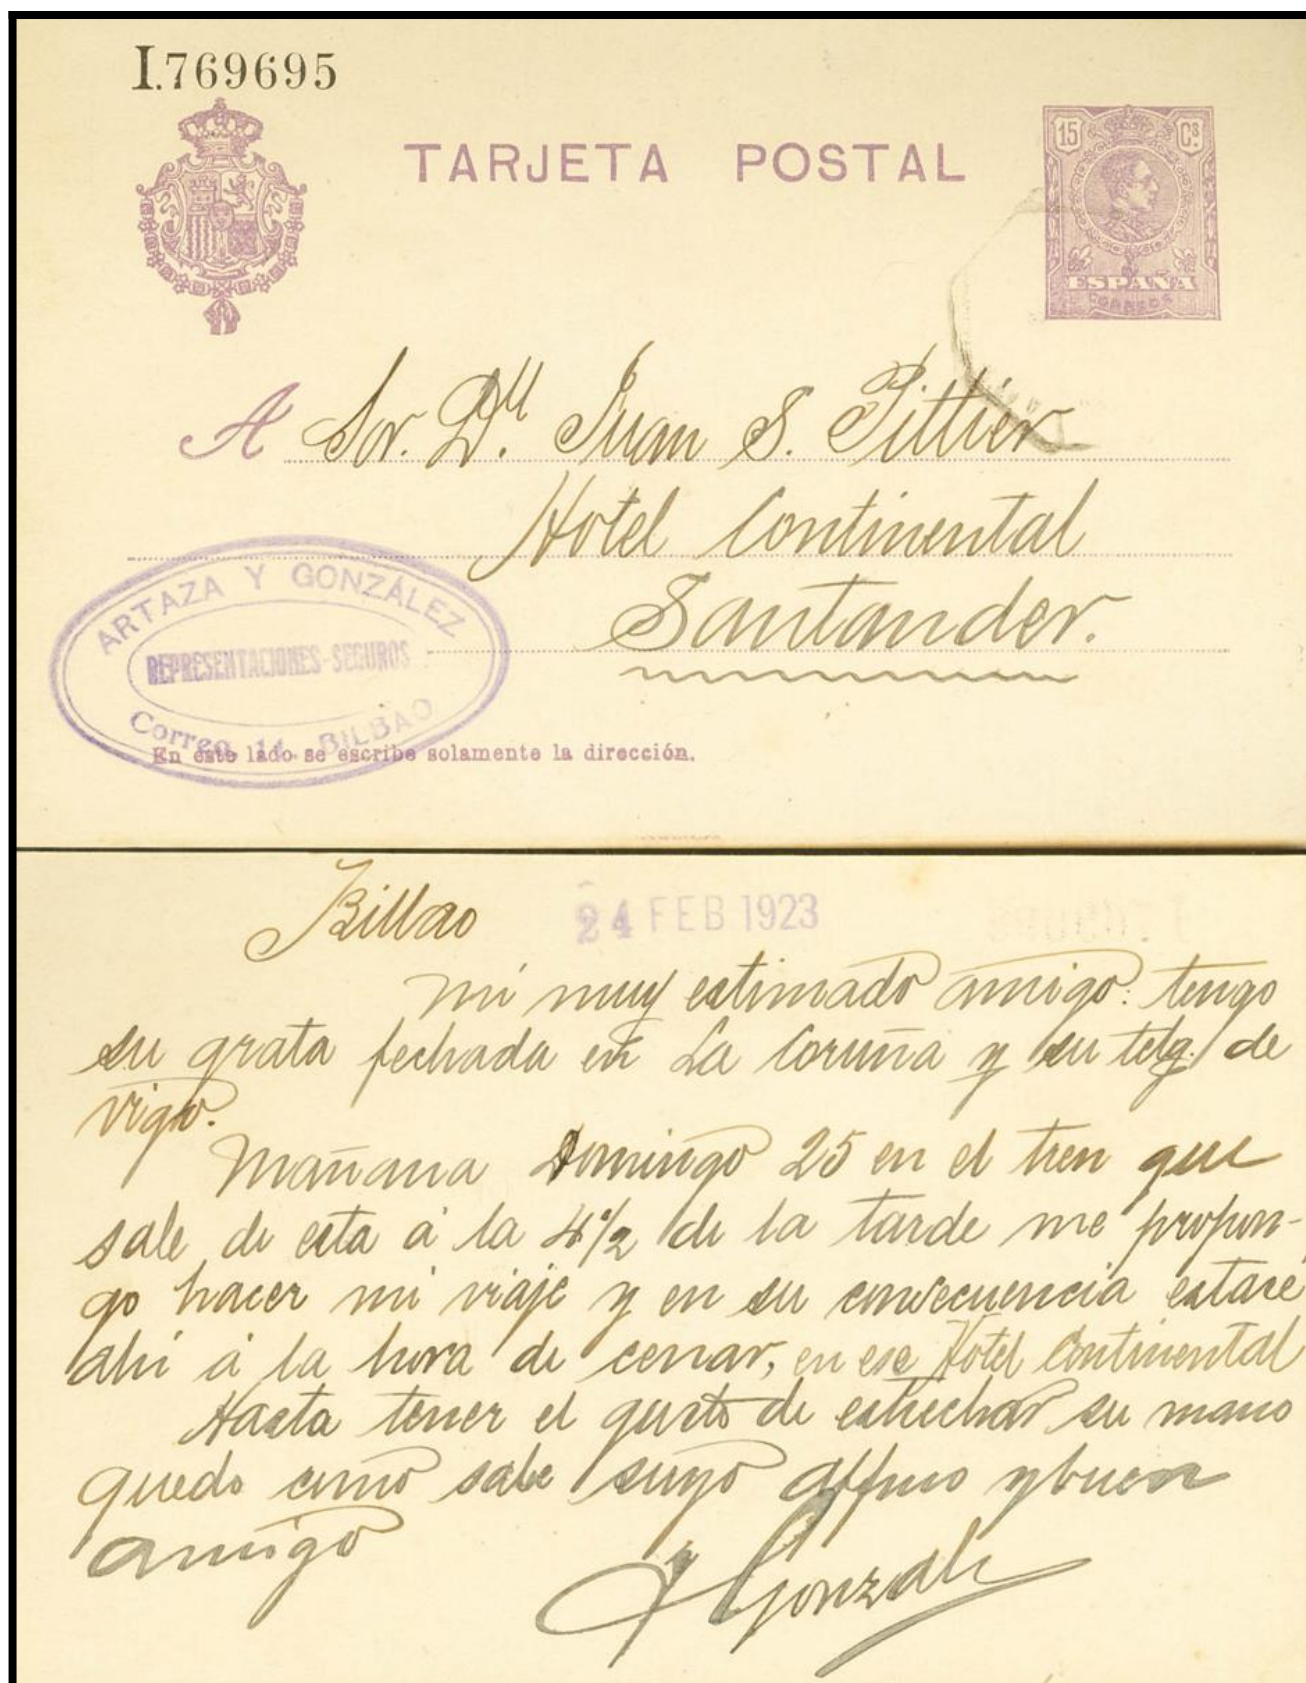 I.769695
TARJETA POSTAL
15 Cs.
ESPAÑA
CORREOS
A Sor. Dn. Juan S. Pittier
Hotel Continental
Santander.
ARTAZA Y GONZÁLEZ
REPRESENTACIONES-SEGUROS
Correo, 11. BILBAO
En este lado se escribe solamente la dirección.
Bilbao 24 FEB 1923
Mi muy estimado amigo: tengo
su grata fechada en La Coruña y su telg. de
Vigo.
Mañana Domingo 25 en el tren que
sale de esta á la 4 1/2 de la tarde me propon-
go hacer mi viaje y en su consecuencia estaré
ahi á la hora de cenar, en ese Hotel Continental
Hasta tener el gusto de estrechar su mano
quedo como sabe suyo affmo y buen
amigo
Gonzalz